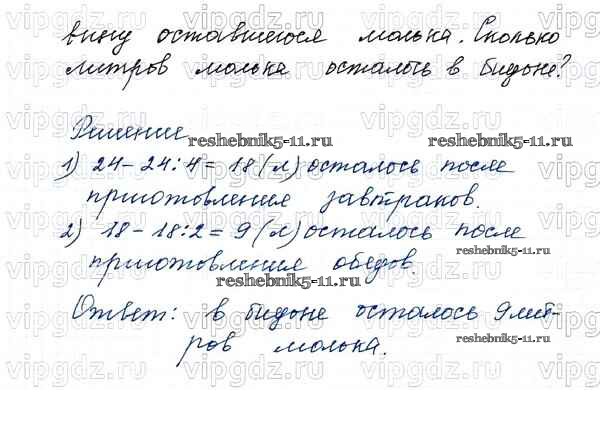 вину оставшегося молока. Сколько
литров молока осталось в бидоне?
Решение
reshebnik5-11.ru
reshebnik5-11.ru
1) 24-24:4=18(л) осталось после
приготовления завтраков.
reshebnik5-11.ru
2) 18-18:2=9(л) осталось после
reshebnik5-11.ru
приготовления обедов.
reshebnik5-11.ru
Ответ: в бидоне осталось 9 лит-
ров молока.
reshebnik5-11.ru
vipgdz.ru vipgdz.ru vipgdz.ru vipgdz.ru